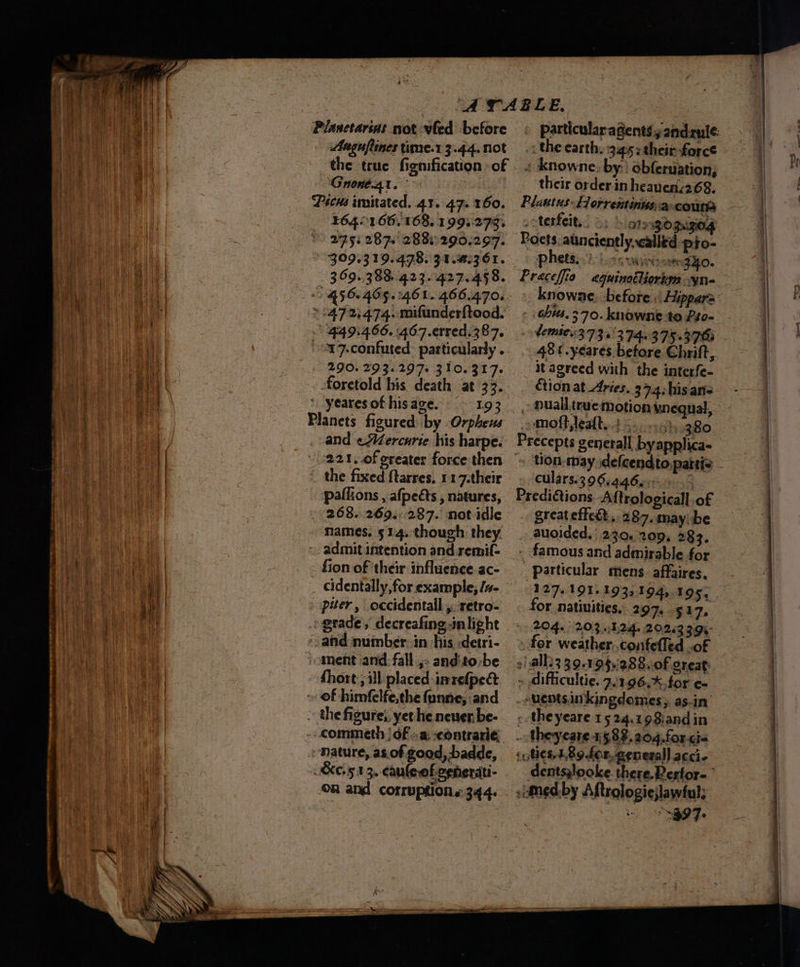 A TABLE.
Planetarius not vsed before
Augustines time.13.44. not
the true signification of
Gnome.41.
Picus imitated. 41. 47. 160.
164.166.168.199.273.
275.287.288.290.297.
309.319.478.31.*.361.
369.388.423.427.458.
456.465.461.466.470.
472.474. misunderstood.
449.466.467.erred.387.
17.confuted particularly.
290.293.297.310.317.
foretold his death at 33.
yeares of his age. 193
Planets figured by Orpheus
and Mercurie his harpe.
221. of greater force then
the fixed starres. 117.their
passions, aspects, natures,
268. 269. 287. not idle
names. 514. though they
admit intention and remis-
sion of their influence ac-
cidentally, for example, Iu-
piter, occidentall, retro-
grade, decreasing in light
and number in his detri-
ment and fall, and to be
short, ill placed in respect
of himselfe, the sunne, and
the figure, yet he neuer be-
commeth of a contrarie
nature, as of good, badde,
&c.513. cause of generati-
on and corruption. 344.
particular agents, and rule
the earth. 345. their force
knowne by obseruation,
their order in heauen.268.
Plautus Florrentinus a coun
terfeit.
Poets aunciently called pro-
phets. 340.
Precessio equinoctiorum vn-
knowne before Hippar-
chus. 370. knowne to Pto-
lemie. 373. 374. 375.376.
481. yeares before Christ,
it agreed with the interse-
ction at Aries. 374. his an-
nuall true motion vnequal,
most, least. 380
Precepts generall by applica-
tion may descend to parti-
culars.396.446.
Predictions Astrologicall of
great effect, 287. may be
auoided. 230. 209. 283.
famous and admirable for
particular mens affaires.
127.191.193.194.195.
for natiuities. 297. 517.
204. 203.124.202.339.
for weather confessed of
all.339.195.288.of great
difficultie. 7.196.*.for e-
uents in kingdomes, as in
the yeare 1524.198.and in
the yeare 1588.204.for ci-
ties.189.for generall acci-
dents, looke there. Perfor-
med by Astrologie, lawful;
397.